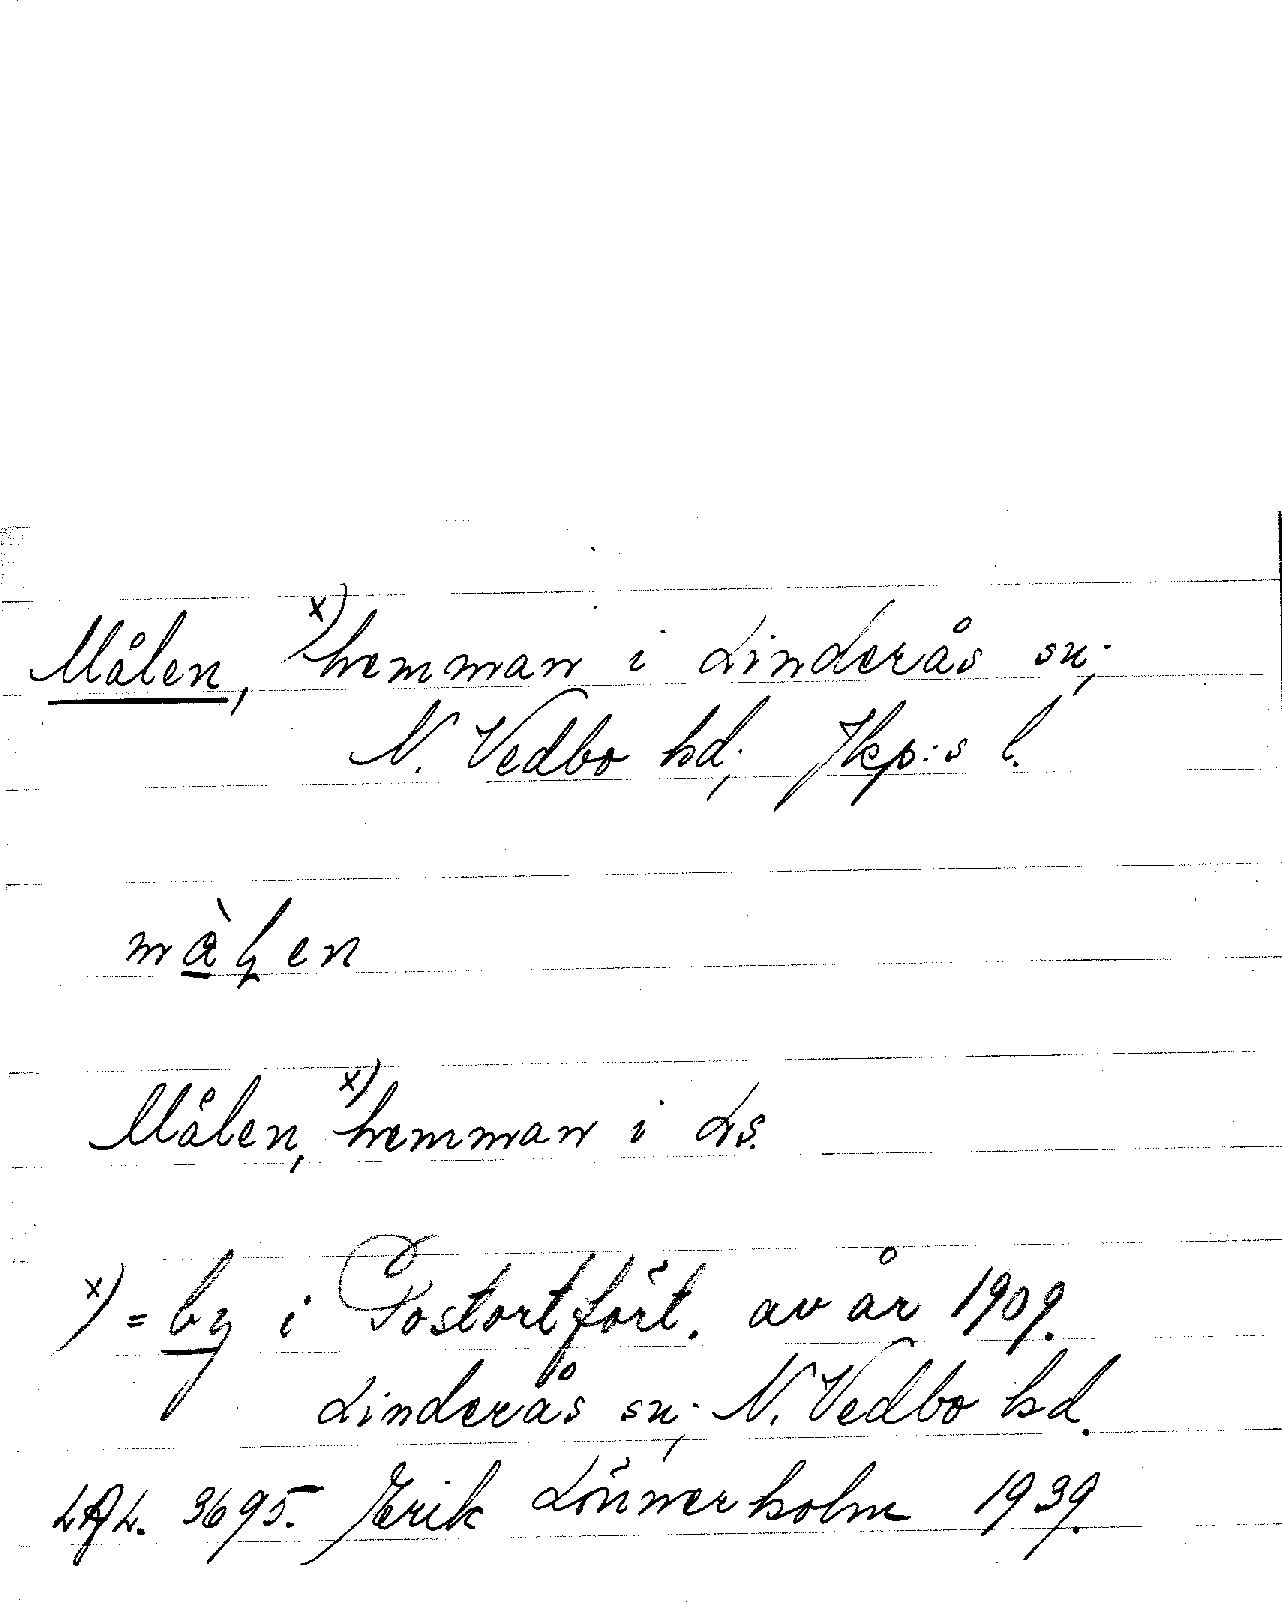 Målen, x) hemman i Linderås sn;
N. Vedbo hd; Jkp:s l.
màl̨en
Målen, x) hemman i Ls.
x) = by i Postortfört. av år 1909.
Linderås sn; N. Vedbo hd.
3695. Erik Lönnerholm 1939.